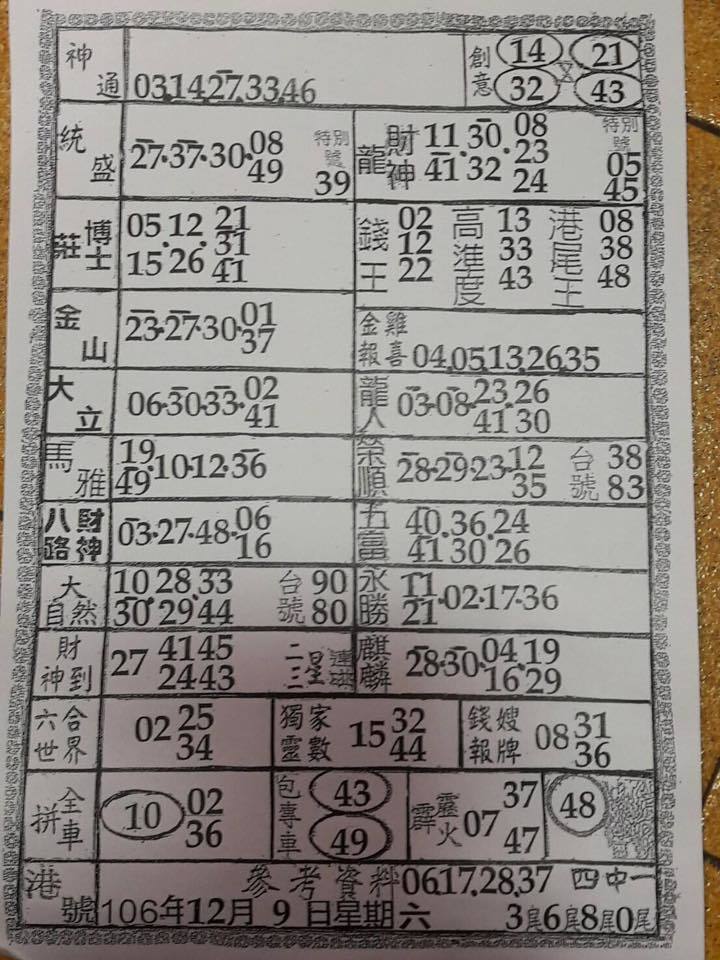 神通 03.14.27.33.46
創意 14 21
32 X 43
統盛 27.37.30.08
49
特別號 39
龍財神 11.30.08
41 32 23
24
特別號 05
45
莊博士 05.12.21
15 26 31
41
錢王 02
12
22
高進度 13
33
43
港尾王 08
38
48
金山 23.27.30.01
37
金雞報喜 04.05.13.26.35
大立 06.30.33.02
41
龍人 03.08.23.26
41 30
馬雅 19.10.12.36
49
榮順 28.29.23.12
35
台號 38
83
八路財神 03.27.48.06
16
五富 40.36.24
41 30 26
大自然 10 28.33
30 29 44
台號 90
80
永勝 11.02.17.36
21
財神到 27 41 45
24 43
二三星連碰
麒麟 28.30.04.19
16 29
六合世界 02 25
34
獨家靈數 15 32
44
錢嫂報牌 08 31
36
拼全車 10 02
36
包專車 43
49
霹靂火 07 37
47
48
港號 參考資料 06.17.28.37 四中一
106年12月9日星期六 3尾6尾8尾0尾